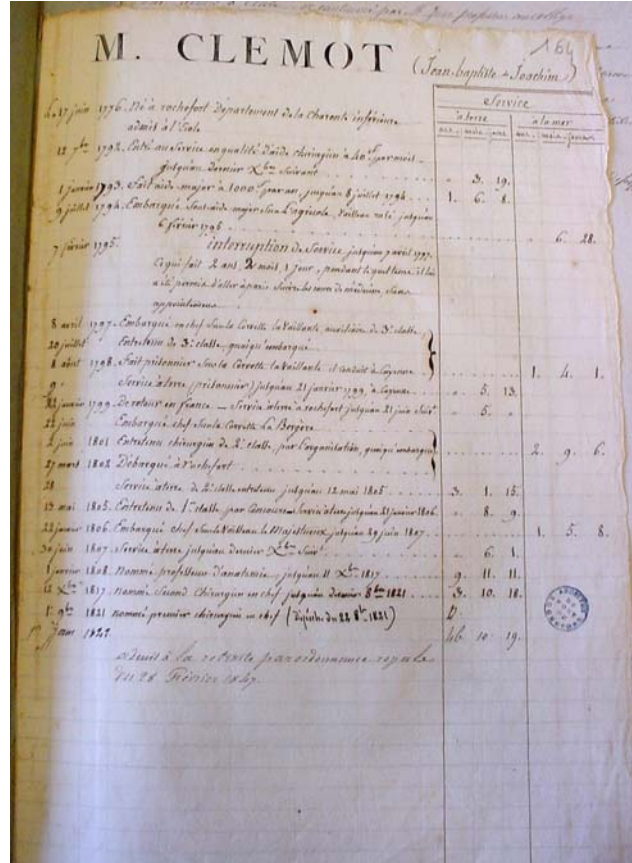 164
M. CLEMOT (Jean-baptiste-Joachim)
Service
à terre à la mer
ans. mois. jours ans. mois. jours
le 17 juin 1776. Né à rochefort Département de la Charente inférieure
admis à l'Ecole
12 7bre 1792. Entré au Service en qualité d'aide chirurgien à 40 f par mois
jusqu'au dernier Xbre Suivant 3. 19.
1 janvier 1793. fait aide-major à 1000 f par an, jusqu'au 8 juillet 1794 1. 6. 8.
9 juillet 1794. Embarqué Sous-aide-major Sur l'agricole, Vaisseau rasé, jusqu'au
6 février 1795 6. 28.
7 février 1795. interruption de Service jusqu'au 7 avril 1797.
Ce qui fait 2 ans, 2 mois, 1 jour, pendant lequel tems, il lui
a été permis d'aller à paris Suivre les cours de médecine, Sans
appointemens
8 avril 1797. Embarqué en chef Sur la Corvette la Vaillante auxiliaire de 3e classe
20 juillet Entretenu de 3e classe, quoiqu'embarqué
8 août 1798. Fait prisonnier Sur la Corvette la Vaillante et conduit à Cayenne 1. 4. 1.
9 Service à terre (prisonnier) jusqu'au 21 janvier 1799, à Cayenne 5. 13.
22 janvier 1799. De retour en france — Service à terre à rochefort jusqu'au 21 juin Suivt 5.
22 juin Embarqué chef Sur la Corvette La Bergère
2 juin 1801 Entretenu chirurgien de 2e classe, par l'organisation, quoiqu'embarqué 2. 9. 6.
27 mars 1802 Débarqué à Rochefort
28 Service à terre de 2e classe entretenu jusqu'au 12 mai 1805 3. 1. 15.
13 mai 1805. Entretenu de 1re classe, par Concours Service à terre jusqu'au 21 janvier 1806. 8. 9.
22 janvier 1806. Embarqué chef Sur le Vaisseau le Majestueux jusqu'au 29 juin 1807 1. 5. 8.
30 juin 1807. Service à terre jusqu'au dernier Xbre Suivt 6. 1.
1 janvier 1808. Nommé professeur d'anatomie, jusqu'au 11 Xbre 1817 9. 11. 11.
12 Xbre 1817. nommé Second Chirurgien en chef jusqu'au dernier 8bre 1821 3. 10. 18.
1er 9bre 1821 nommé premier chirurgien en chef (Dépêche du 22 8bre 1821)
1er Janv 46 10 19.
admis à la retraite par ordonnance royale
du 28 Février 1847